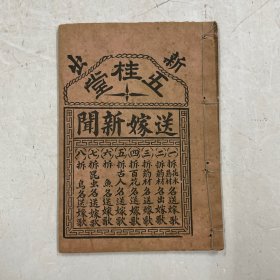 新出
五桂堂
送嫁新聞
一拆花木名送嫁歌
二拆药材名出嫁歌
三拆药材名送嫁歌
四拆百花名送嫁歌
五拆古人名送嫁歌
六拆魚名送嫁歌
七拆昆虫名送嫁歌
八拆鳥名送嫁歌